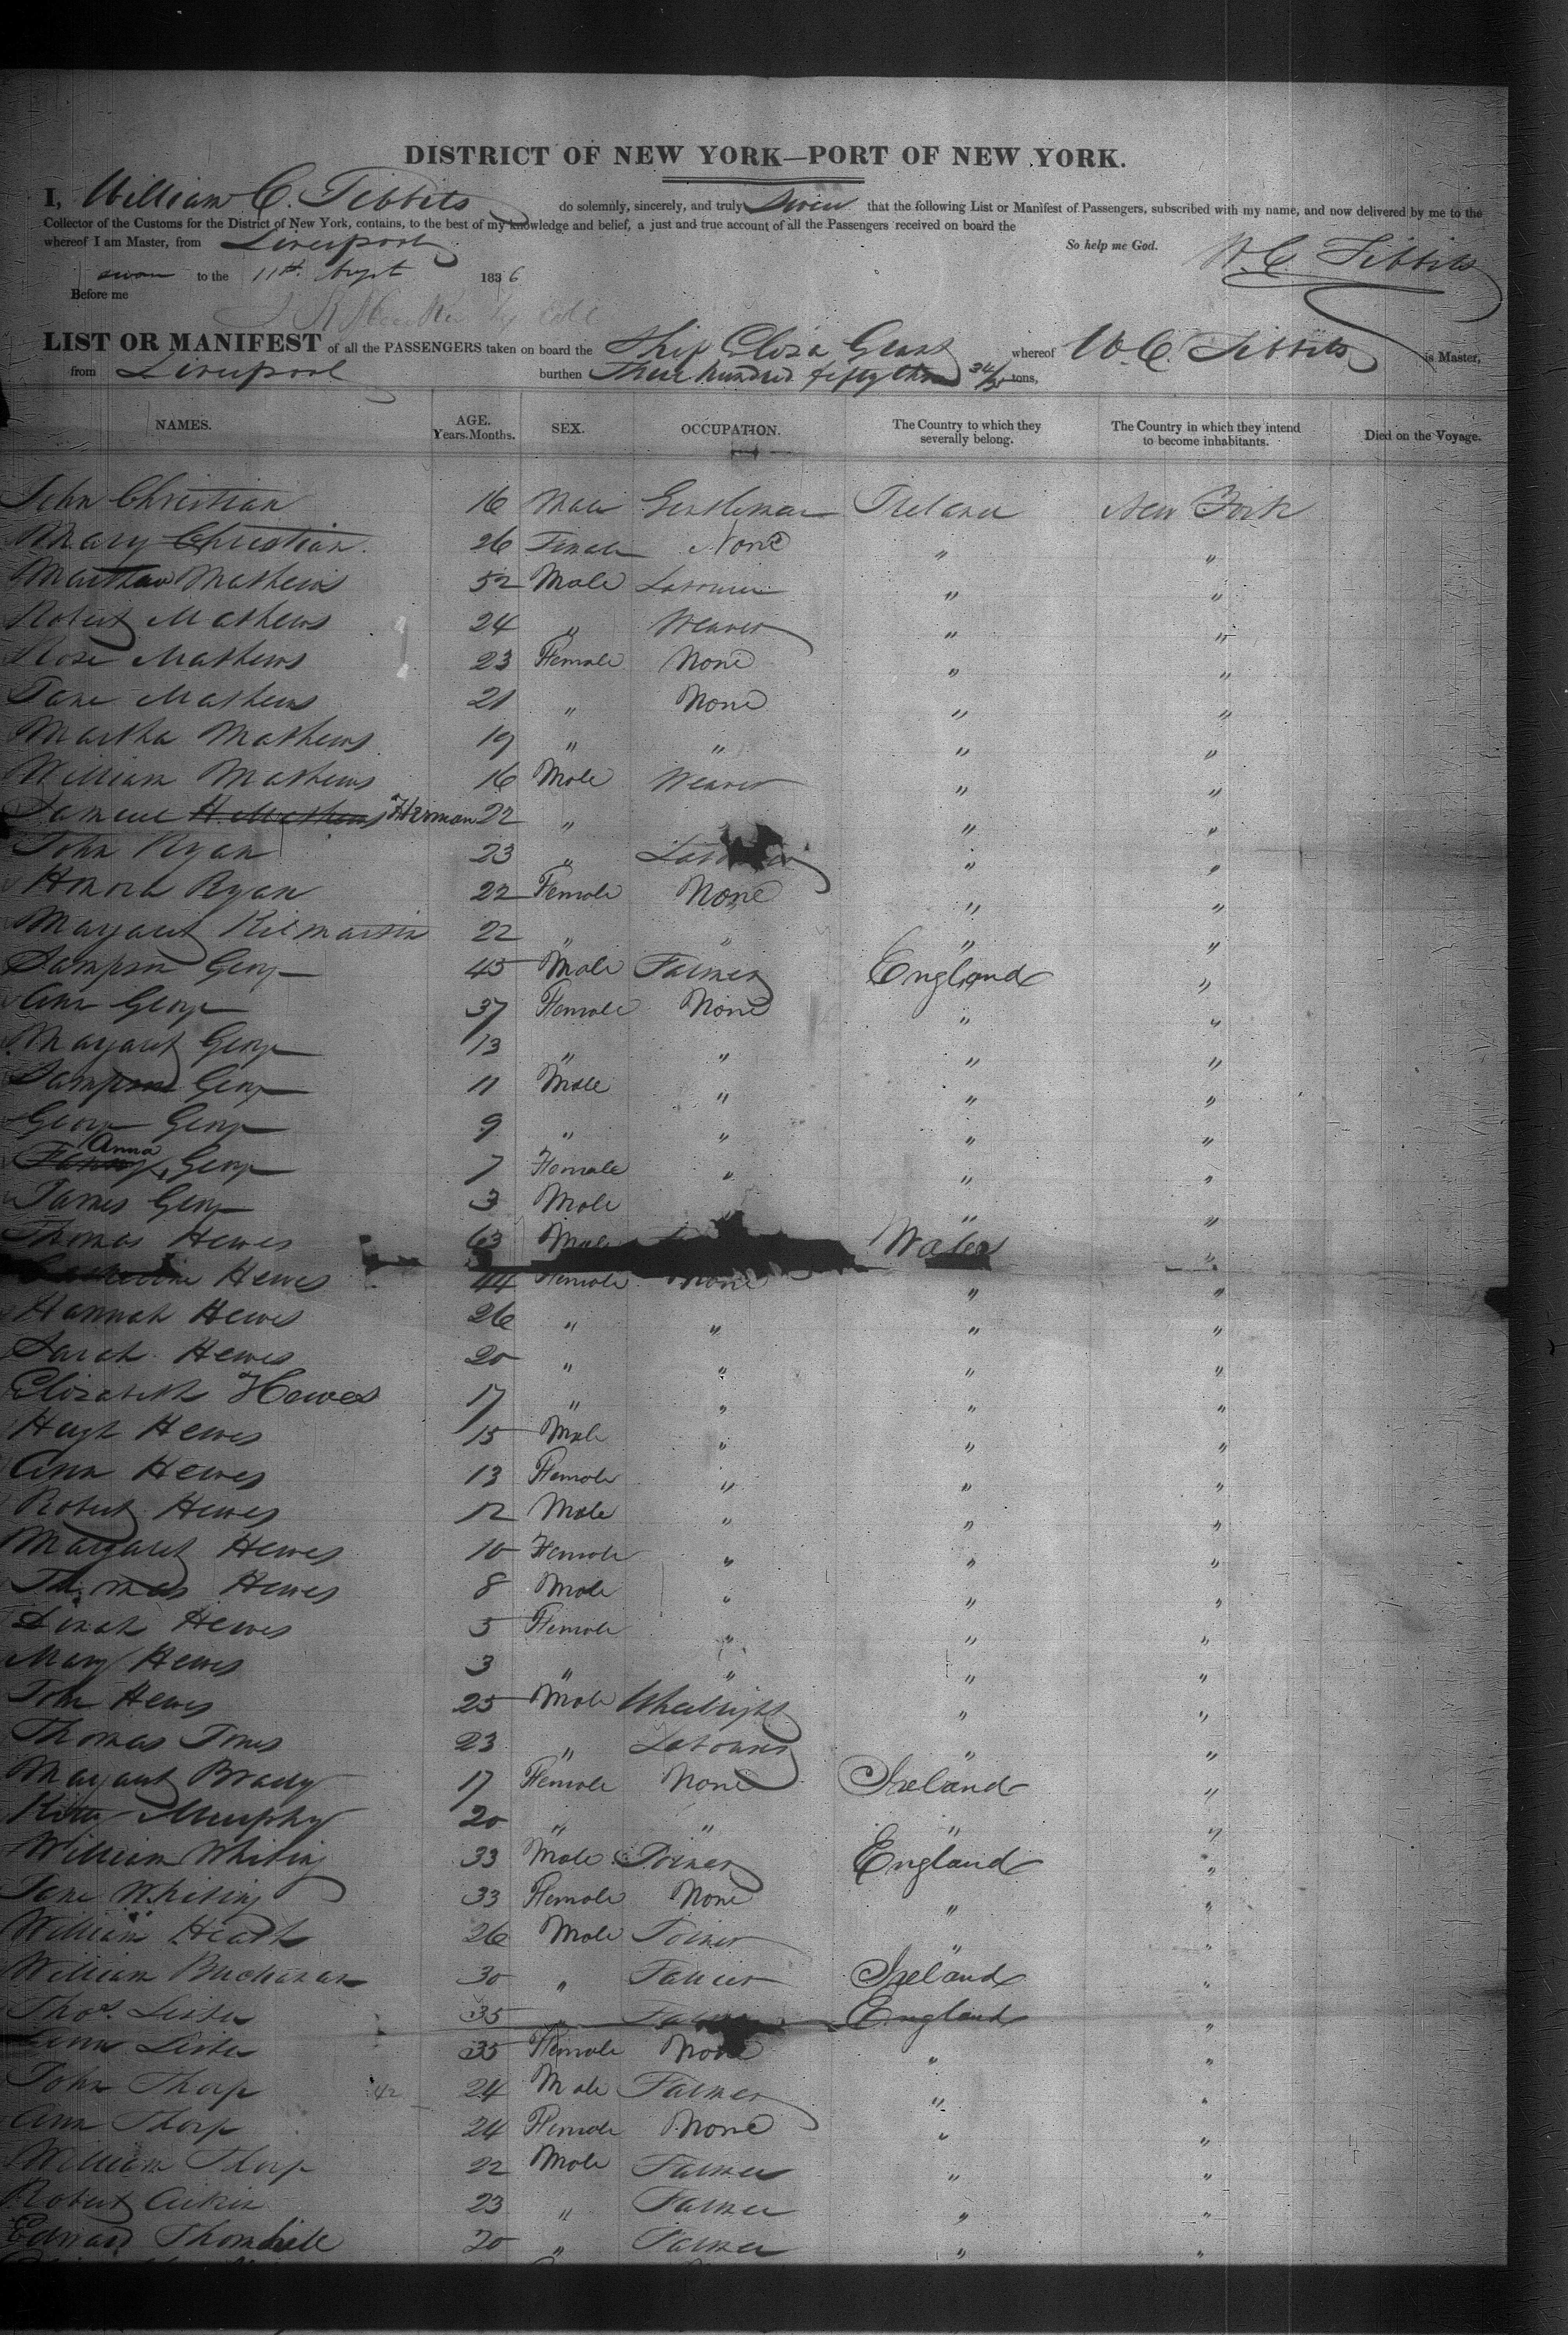 DISTRICT OF NEW YORK—PORT OF NEW YORK.
I, William C. Tibbits do solemnly, sincerely, and truly swear that the following List or Manifest of Passengers, subscribed with my name, and now delivered by me to the
Collector of the Customs for the District of New York, contains, to the best of my knowledge and belief, a just and true account of all the Passengers received on board the
whereof I am Master, from Liverpool So help me God. W. C. Tibbits
sworn to the 11th 1836
Before me
LIST OR MANIFEST of all the PASSENGERS taken on board the Ship Eliza Grant whereof W. C. Tibbits is Master,
from Liverpool burthen Three hundred fifty three tons,
NAMES. AGE. Years. Months. SEX. OCCUPATION. The Country to which they severally belong. The Country in which they intend to become inhabitants. Died on the Voyage.
John Christian 16 Male Gentleman Ireland New York
Mary Christian 26 Female None " "
Mathew Mathews 52 Male Labourer " "
Robert Mathews 24 " Weaver " "
Rose Mathews 23 Female None " "
Jane Mathews 21 " None " "
Martha Mathews 19 " " " "
William Mathews 16 Male Weaver " "
Samuel H. Mathews Herman 22 " " "
John Ryan 23 " " "
Honora Ryan 22 Female None " "
Margaret Kilmartin 22 " " " "
Sampson George 45 Male Farmer England "
Ann George 37 Female None " "
Margaret George 13 " " " "
Sampson George 11 Male " " "
George George 9 " " " "
Fanny Anna George 7 Female " " "
James George 3 Male " "
Thomas Hewes 63 Male Wales "
Hewes 44 Female None " "
Hannah Hewes 26 " " " "
Sarah Hewes 20 " " " "
Elizabeth Hewes 17 " " " "
Hugh Hewes 15 Male " " "
Ann Hewes 13 Female " " "
Robert Hewes 12 Male " " "
Margaret Hewes 10 Female " " "
Thomas Hewes 8 Male " " "
Dinah Hewes 5 Female " " "
Mary Hewes 3 " " " "
John Hewes 25 Male Wheelright " "
Thomas Jones 23 " Labourer " "
Margaret Brady 17 Female None Ireland "
Kitty Murphy 20 " " " "
William Whiting 33 Male Joiner England "
Jane Whiting 33 Female None " "
William Heath 26 Male Joiner " "
William Buchanan 30 " Farmer Ireland "
Thos. Lister 35 " Farmer England "
Ann Lister 35 Female None " "
John Thorp 42 24 Male Farmer " "
Ann Thorp 24 Female None " "
William Thorp 22 Male Farmer " "
Robert Aikin 23 " Farmer " "
Edward Thornhill 20 " Farmer " "